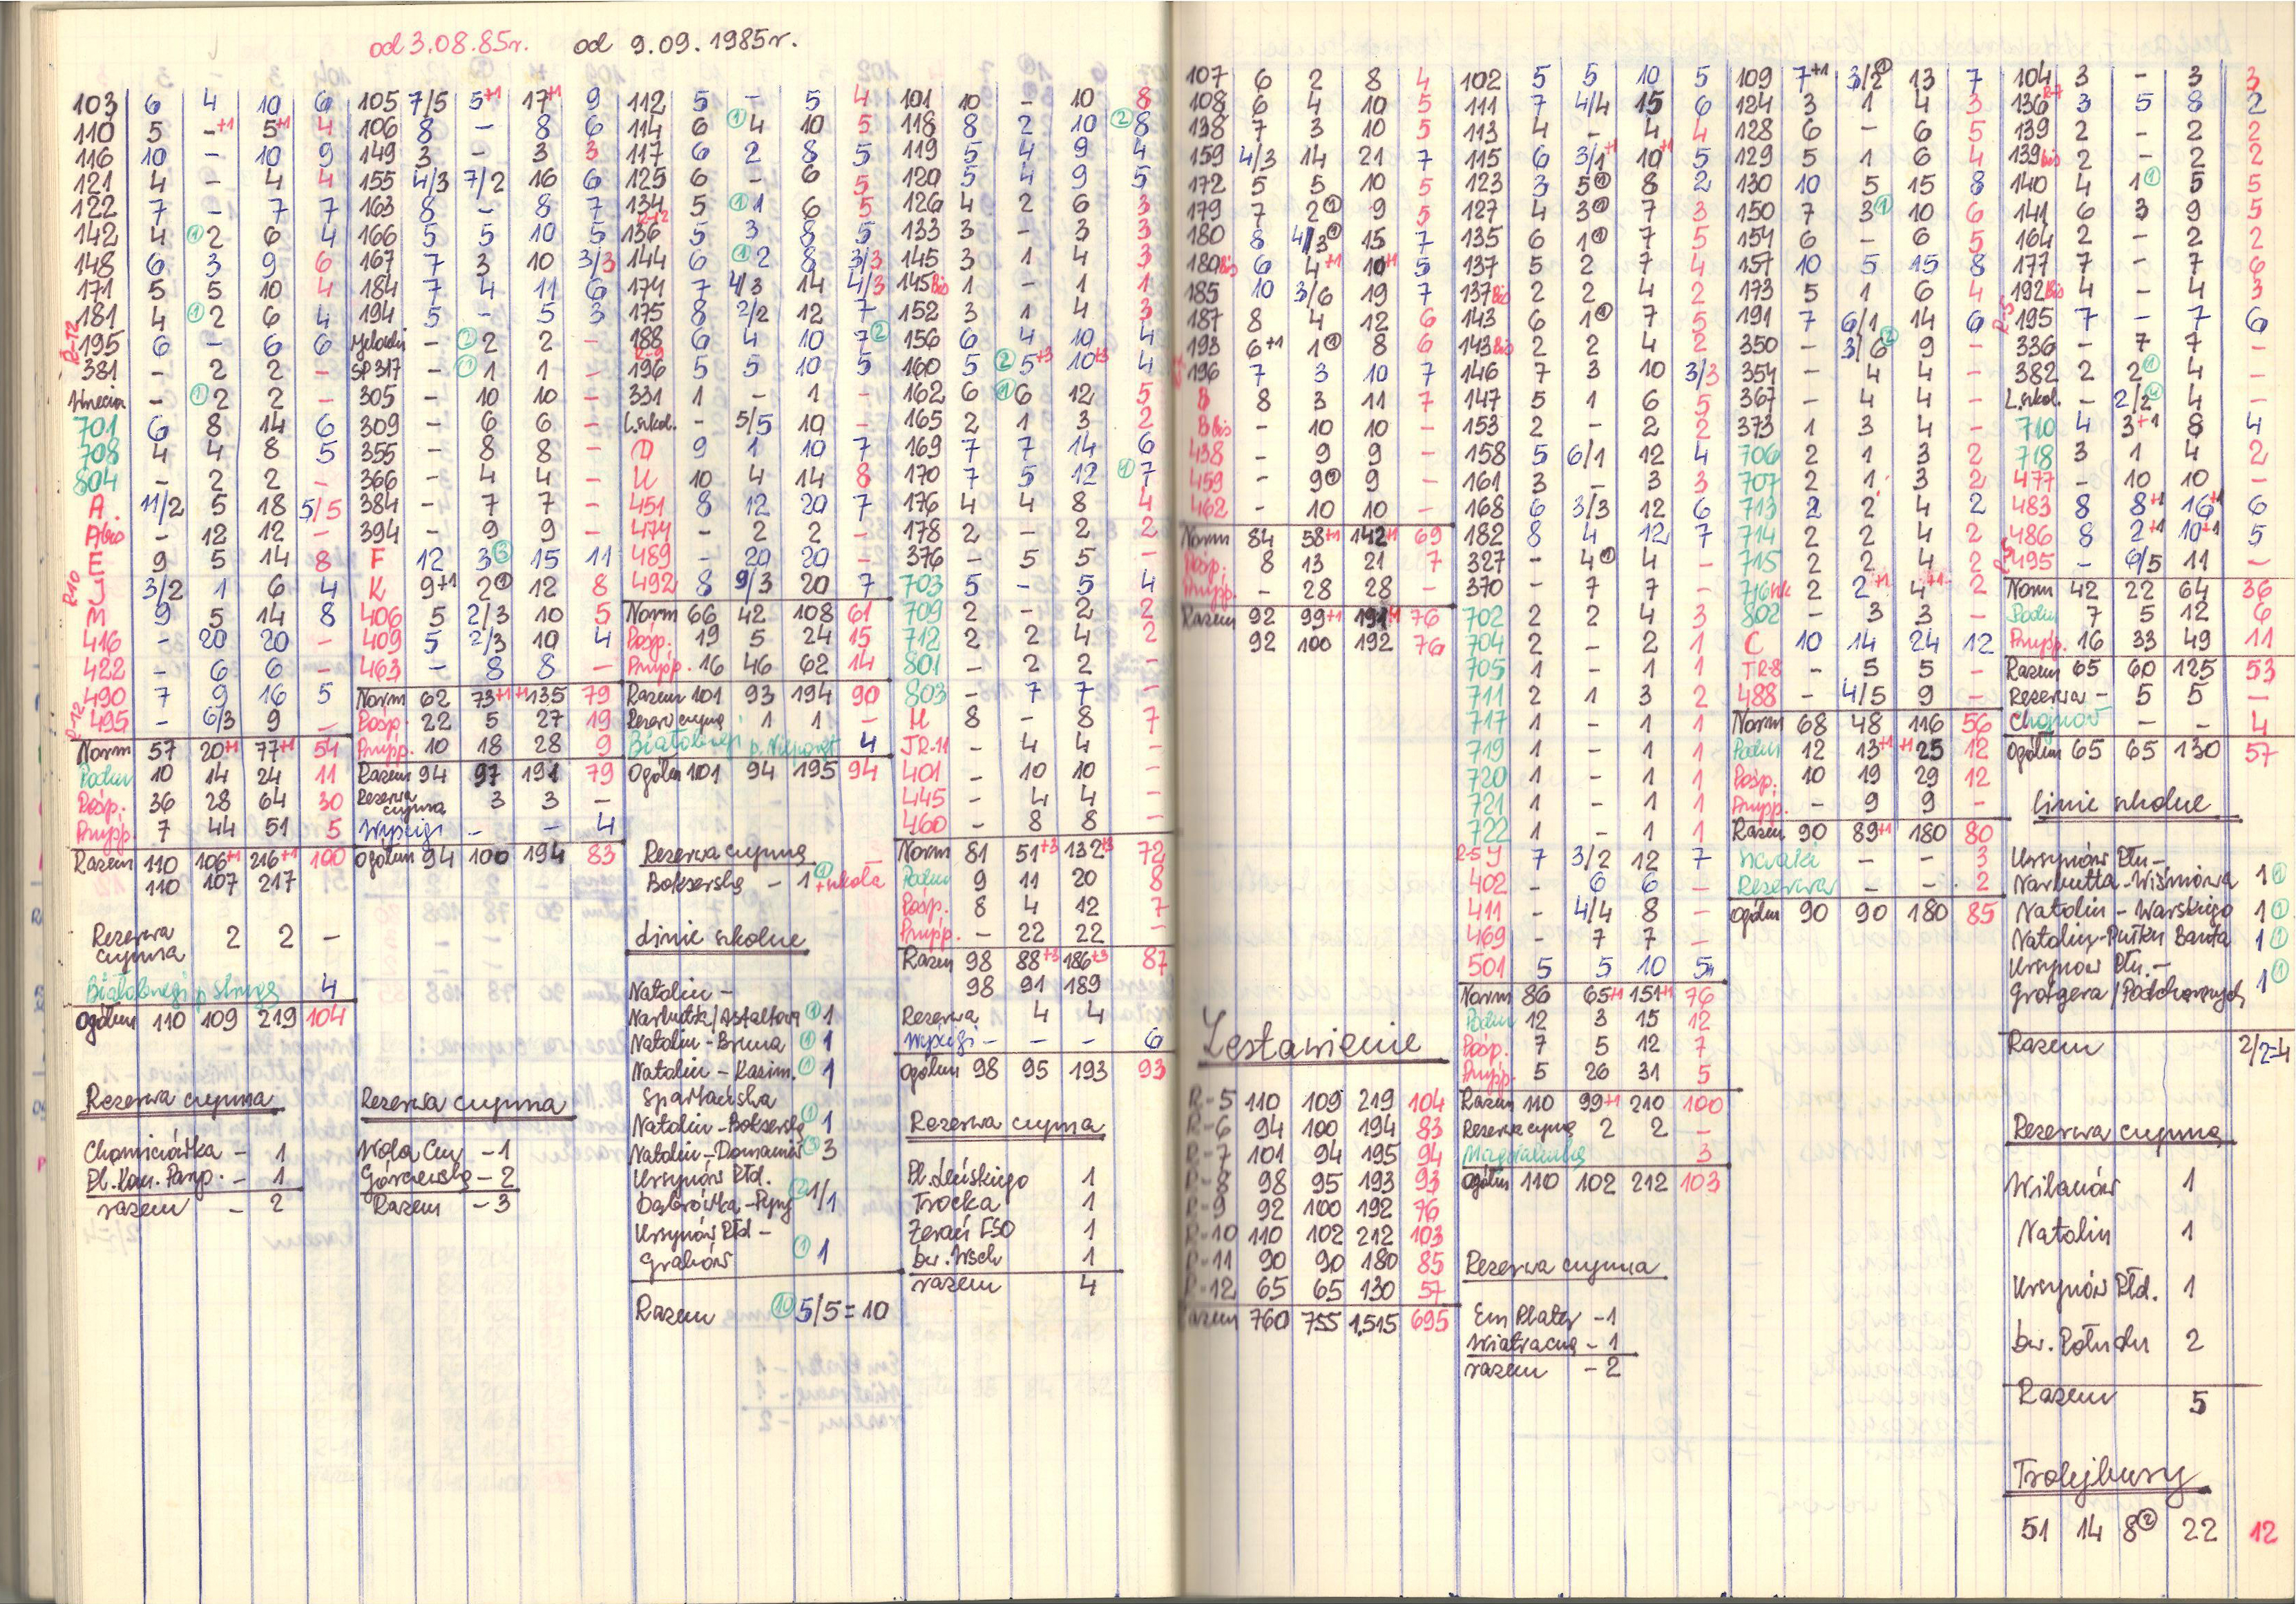 od 3.08.85r. od 9.09.1985r.
103 6 4 10 6
110 5 -+1 5+1 4
116 10 - 10 9
121 4 - 4 4
122 7 - 7 7
142 4 ①2 6 4
148 6 3 9 6
171 5 5 10 4
181 4 ①2 6 4
R-12 195 6 - 6 6
381 - 2 2 -
- ①2 2 -
701 6 8 14 6
708 4 4 8 5
804 - 2 2 -
A. 11/2 5 18 5/5
Abis - 12 12 -
E 9 5 14 8
R10 J 3/2 1 6 4
M 9 5 14 8
416 - 20 20 -
422 - 6 6 -
490 7 9 16 5
R-12 495 - 6/3 9 -
Norm 57 20+1 77+1 54
Podm 10 14 24 11
Pośp. 36 28 64 30
Przysp. 7 44 51 5
Razem 110 106+1 216+1 100
110 107 217
Rezerwa czynna 2 2 -
Białobrzegi p. Strugę 4
Ogółem 110 109 219 104
Rezerwa czynna
Chomiczówka - 1
Pl. Kom. Parys. - 1
razem - 2
105 7/5 5+1 17+1 9
106 8 - 8 6
149 3 - 3 3
155 4/3 7/2 16 6
163 8 - 8 7
166 5 5 10 5
167 7 3 10 3/3
184 7 4 11 6
194 5 - 5 3
Jelonki - ②2 2 -
SP 317 - ①1 1 -
305 - 10 10 -
309 - 6 6 -
355 - 8 8 -
366 - 4 4 -
384 - 7 7 -
394 - 9 9 -
F 12 3③ 15 11
K 9+1 2① 12 8
406 5 2/3 10 5
409 5 2/3 10 4
463 - 8 8 -
Norm 62 73+1 +1135 79
Pośp. 22 5 27 19
Przysp. 10 18 28 9
Razem 94 97 191 79
Rezerwa czynna 3 3 -
Wyścigi - - 4
Ogółem 94 100 194 83
Rezerwa czynna
Wola Cm - 1
Górczewska - 2
Razem - 3
112 5 - 5 4
114 6 ①4 10 5
117 6 2 8 5
125 6 - 6 5
134 5 ①1 6 5
R-12 136 5 3 8 5
144 6 ①2 8 3/3
174 7 4/3 14 4/3
175 8 2/2 12 7
188 6 4 10 7②
R-9 196 5 5 10 5
331 1 - 1 -
L.szkol. - 5/5 10 -
D 9 1 10 7
U 10 4 14 8
451 8 12 20 7
474 - 2 2 -
489 - 20 20 -
492 8 9/3 20 7
Norm 66 42 108 61
Pośp. 19 5 24 15
Przysp. 16 46 62 14
Razem 101 93 194 90
Rezerw czynna 1 1 -
Białobrzegi p. Nieporęt 4
Ogółem 101 94 195 94
Rezerwa czynna
Bokserska - 1① + szkoła
Linie szkolne
Natolin -
Narbutta/Asfaltowa ① 1
Natolin - Bruna ① 1
Natolin - Kazim. ① 1
Spartańska
Natolin - Bokserska ① 1
Natolin - Domaniew ③ 3
Ursynów Płd.
Dąbrówka - Pyry ② 1/1
Ursynów Płd -
Grabów ① 1
Razem ⑩ 5/5 = 10
101 10 - 10 8
118 8 2 10 ②8
119 5 4 9 4
120 5 4 9 5
126 4 2 6 3
133 3 - 3 3
145 3 1 4 3
145Bis 1 - 1 1
152 3 1 4 3
156 6 4 10 4
160 5 ②5+3 10+3 4
162 6 ①6 12 5
165 2 1 3 2
169 7 7 14 6
170 7 5 12 ①7
176 4 4 8 4
178 2 - 2 2
376 - 5 5 -
703 5 - 5 4
709 2 - 2 2
712 2 2 4 2
801 - 2 2 -
803 - 7 7 -
M 8 - 8 7
TR-11 - 4 4 -
401 - 10 10 -
445 - 4 4 -
460 - 8 8 -
Norm 81 51+3 132+3 72
Podm 9 11 20 8
Pośp. 8 4 12 7
Przysp. - 22 22 -
Razem 98 88+3 186+3 87
98 91 189
Rezerwa 4 4
Wyścigi - - - 6
Ogółem 98 95 193 93
Rezerwa czynna
Pl. Leńskiego 1
Trocka 1
Żerań FSO 1
Dw. Wsch 1
razem 4
107 6 2 8 4
108 6 4 10 5
138 7 3 10 5
159 4/3 14 21 7
172 5 5 10 5
179 7 2① 9 5
180 8 4/3① 15 7
180Bis 6 4+1 10+1 5
185 10 3/6 19 7
187 8 4 12 6
193 6+1 1① 8 6
196 7 3 10 7
B 8 3 11 7
B Bis - 10 10 -
438 - 9 9 -
459 - 9① 9 -
462 - 10 10 -
Norm 84 58+1 142+1 69
Pośp. 8 13 21 7
Przysp. - 28 28 -
Razem 92 99+1 191+1 76
92 100 192 76
Zestawienie
R-5 110 109 219 104
R-6 94 100 194 83
R-7 101 94 195 94
R-8 98 95 193 93
R-9 92 100 192 76
R-10 110 102 212 103
R-11 90 90 180 85
R-12 65 65 130 57
Razem 760 755 1.515 695
102 5 5 10 5
111 7 4/4 15 6
113 4 - 4 4
115 6 3/1+1 10+1 5
123 3 5① 8 2
127 4 3① 7 3
135 6 1① 7 5
137 5 2 7 4
137Bis 2 2 4 2
143 6 1① 7 5
143Bis 2 2 4 2
146 7 3 10 3/3
147 5 1 6 5
153 2 - 2 2
158 5 6/1 12 4
161 3 - 3 3
168 6 3/3 12 6
182 8 4 12 7
327 - 4① 4 -
370 - 7 7 -
702 2 2 4 3
704 2 - 2 1
705 1 - 1 1
711 2 1 3 2
717 1 - 1 1
719 1 - 1 1
720 1 - 1 1
721 1 - 1 1
722 1 - 1 1
R-5 J 7 3/2 12 7
402 - 6 6 -
411 - 4/4 8 -
469 - 7 7 -
501 5 5 10 5
Norm 86 65+1 151+1 76
Podm 12 3 15 12
Pośp. 7 5 12 7
Przysp. 5 26 31 5
Razem 110 99+1 210 100
Rezerwa czynna 2 2 -
Magdalenka 3
Ogółem 110 102 212 103
Rezerwa czynna
Em Plater - 1
Wiatraczna - 1
razem - 2
109 7+1 3/2① 13 7
124 3 1 4 3
128 6 - 6 5
129 5 1 6 4
130 10 5 15 8
150 7 3① 10 6
154 6 - 6 5
157 10 5 15 8
173 5 1 6 4
191 7 6/1 14 6
350 - 3/6② 9 -
354 - 4 4 -
367 - 4 4 -
373 1 3 4 -
706 2 1 3 2
707 2 1 3 2
713 2 2 4 2
714 2 2 4 2
715 2 2 4 2
716 2 2+1 4+1 2
802 - 3 3 -
C 10 14 24 12
TR-8 - 5 5 -
488 - 4/5 9 -
Norm 68 48 116 56
Podm 12 13+1 +125 12
Pośp. 10 19 29 12
Przysp. - 9 9 -
Razem 90 89+1 180 80
- - 3
Rezerwa - - 2
Ogółem 90 90 180 85
104 3 - 3 3
R-7 136 3 5 8 2
139 2 - 2 2
139bis 2 - 2 2
140 4 1① 5 5
141 6 3 9 5
164 2 - 2 2
177 7 - 7 6
192Bis 4 - 4 3
R-5 195 7 - 7 6
336 - 7 7 -
382 2 2① 4 -
L.szkol. - 2/2④ 4 -
710 4 3+1 8 4
718 3 1 4 2
477 - 10 10 -
483 8 8+1 16+1 6
486 8 2+1 10+1 5
R-5 495 - 6/5 11 -
Norm 42 22 64 36
Podm 7 5 12 6
Przysp. 16 33 49 11
Razem 65 60 125 53
Rezerwa - 5 5 -
Chojnów - - 4
Ogółem 65 65 130 57
Linie szkolne
Ursynów Płn -
Narbutta - Wiśniowa 1①
Natolin - Warskiego 1①
Natolin - Pułku Baszta 1①
Ursynów Płn. -
Grottgera/Podchorążych 1①
Razem 2/2=4
Rezerwa czynna
Wilanów 1
Natolin 1
Ursynów Płd. 1
Dw. Połudn 2
Razem 5
Trolejbusy
51 14 8② 22 12